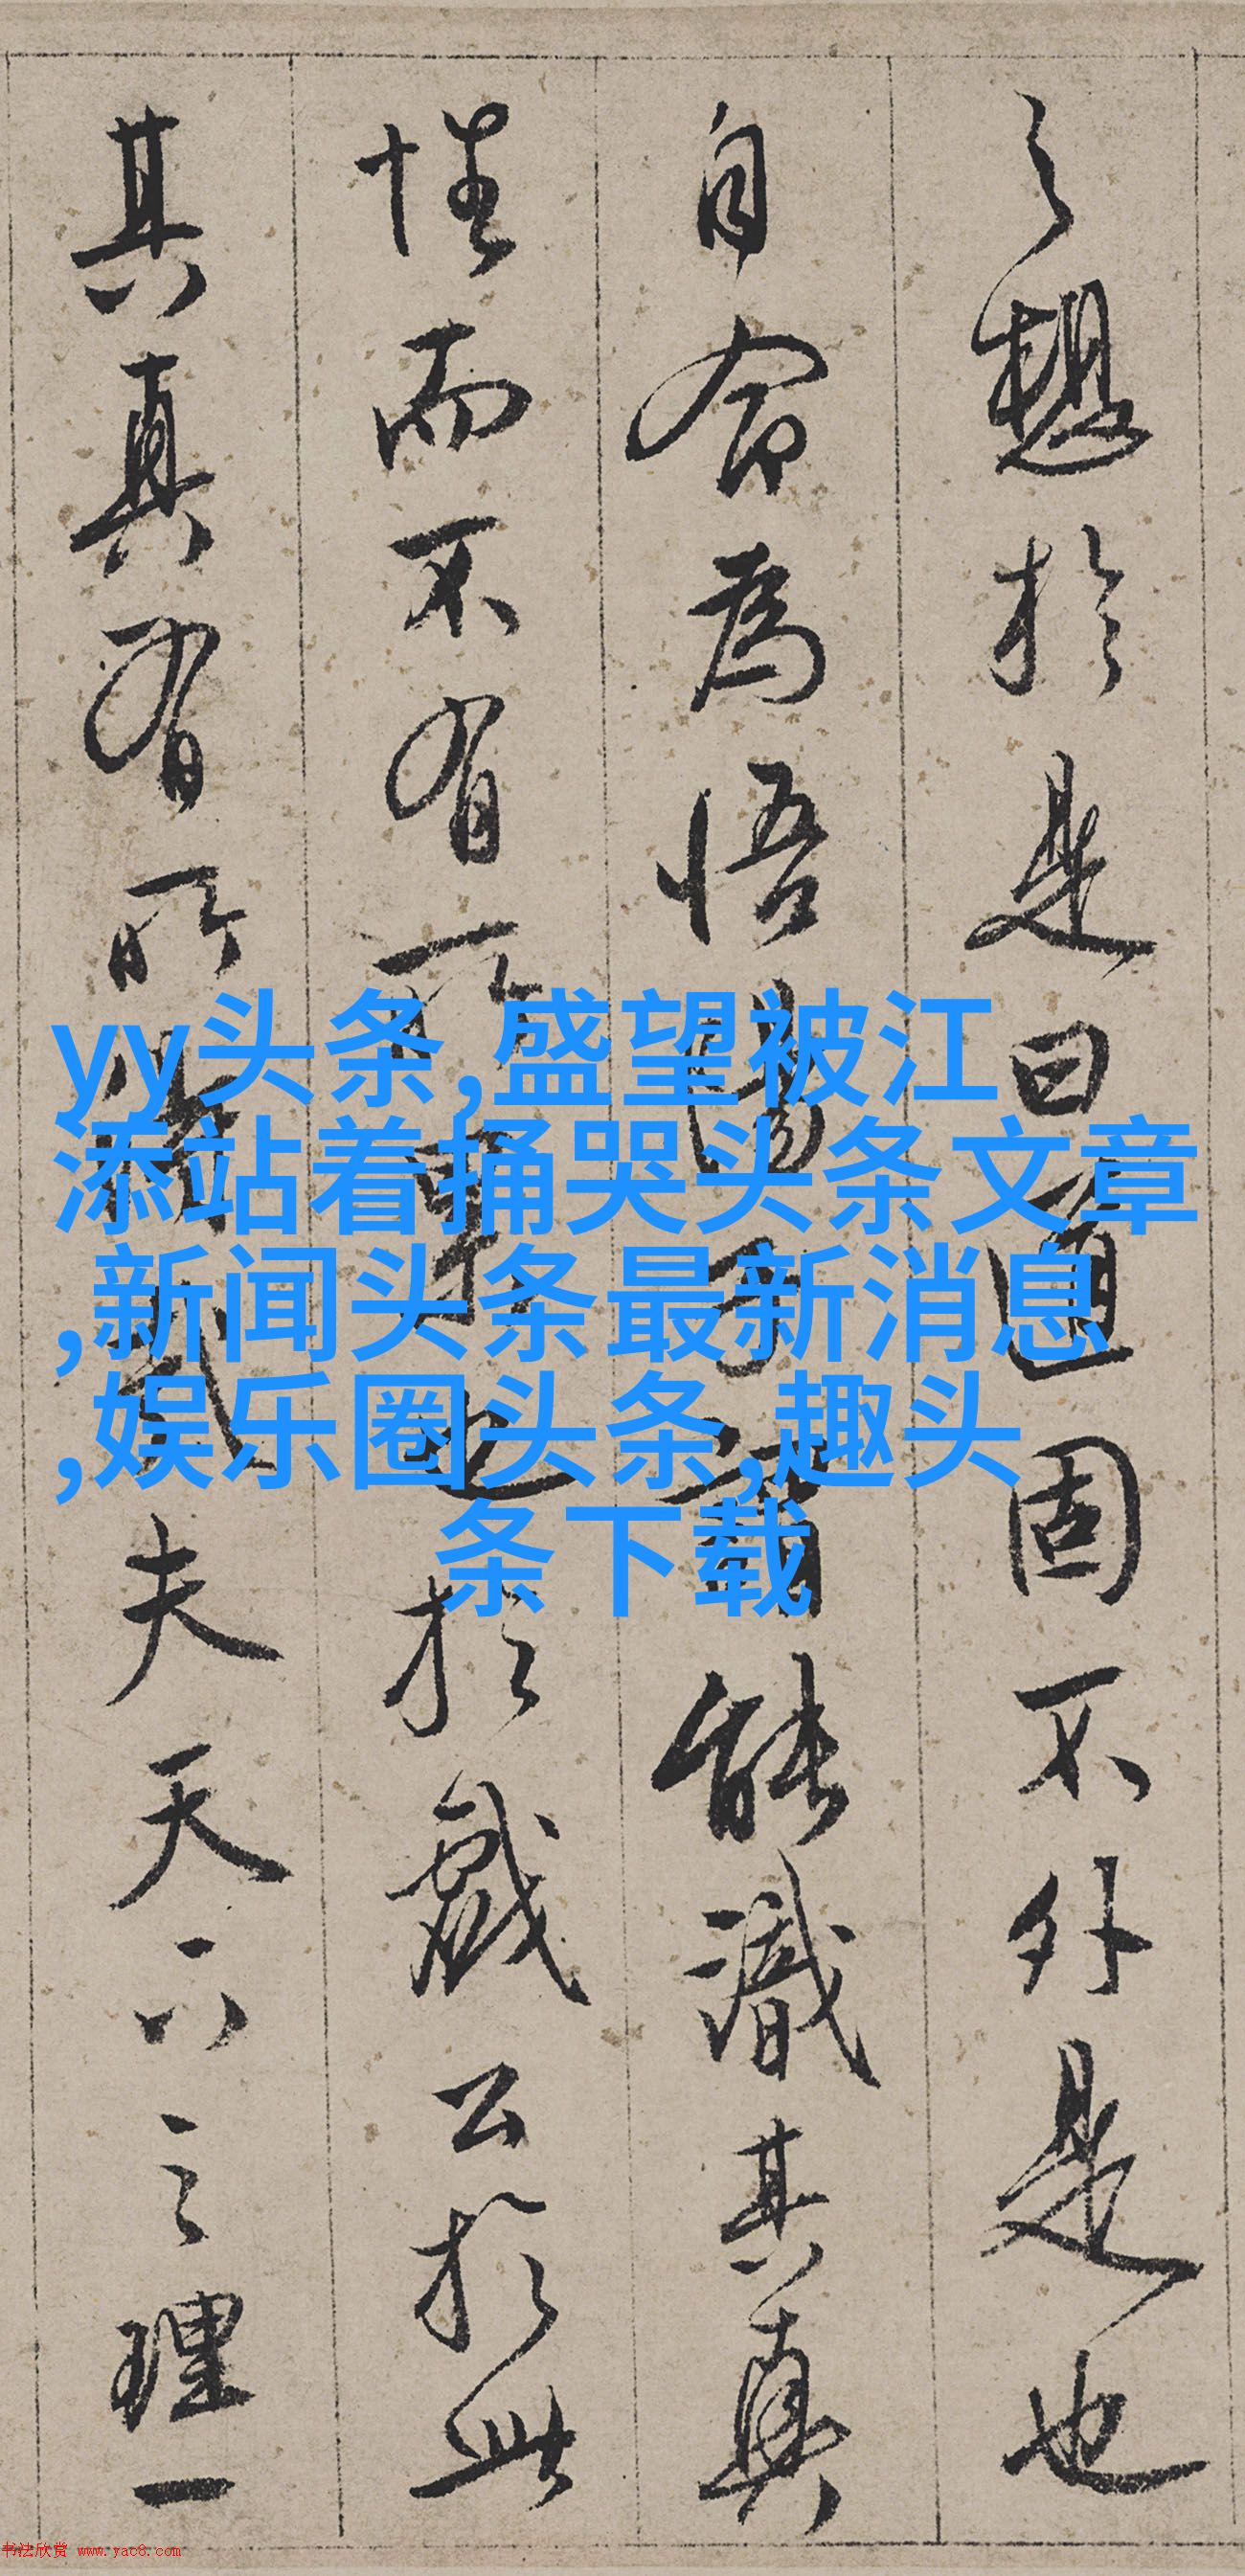 之想於是曰通固不外是也
自命為悟得了皆能識其真
性而不有所 也於戲公於此
其真有所 夫天下之理一
yy头条,盛望被江
添站着捅哭头条文章
,新闻头条最新消息
,娱乐圈头条,趣头
条下载
书法欣赏 www.yac8.com